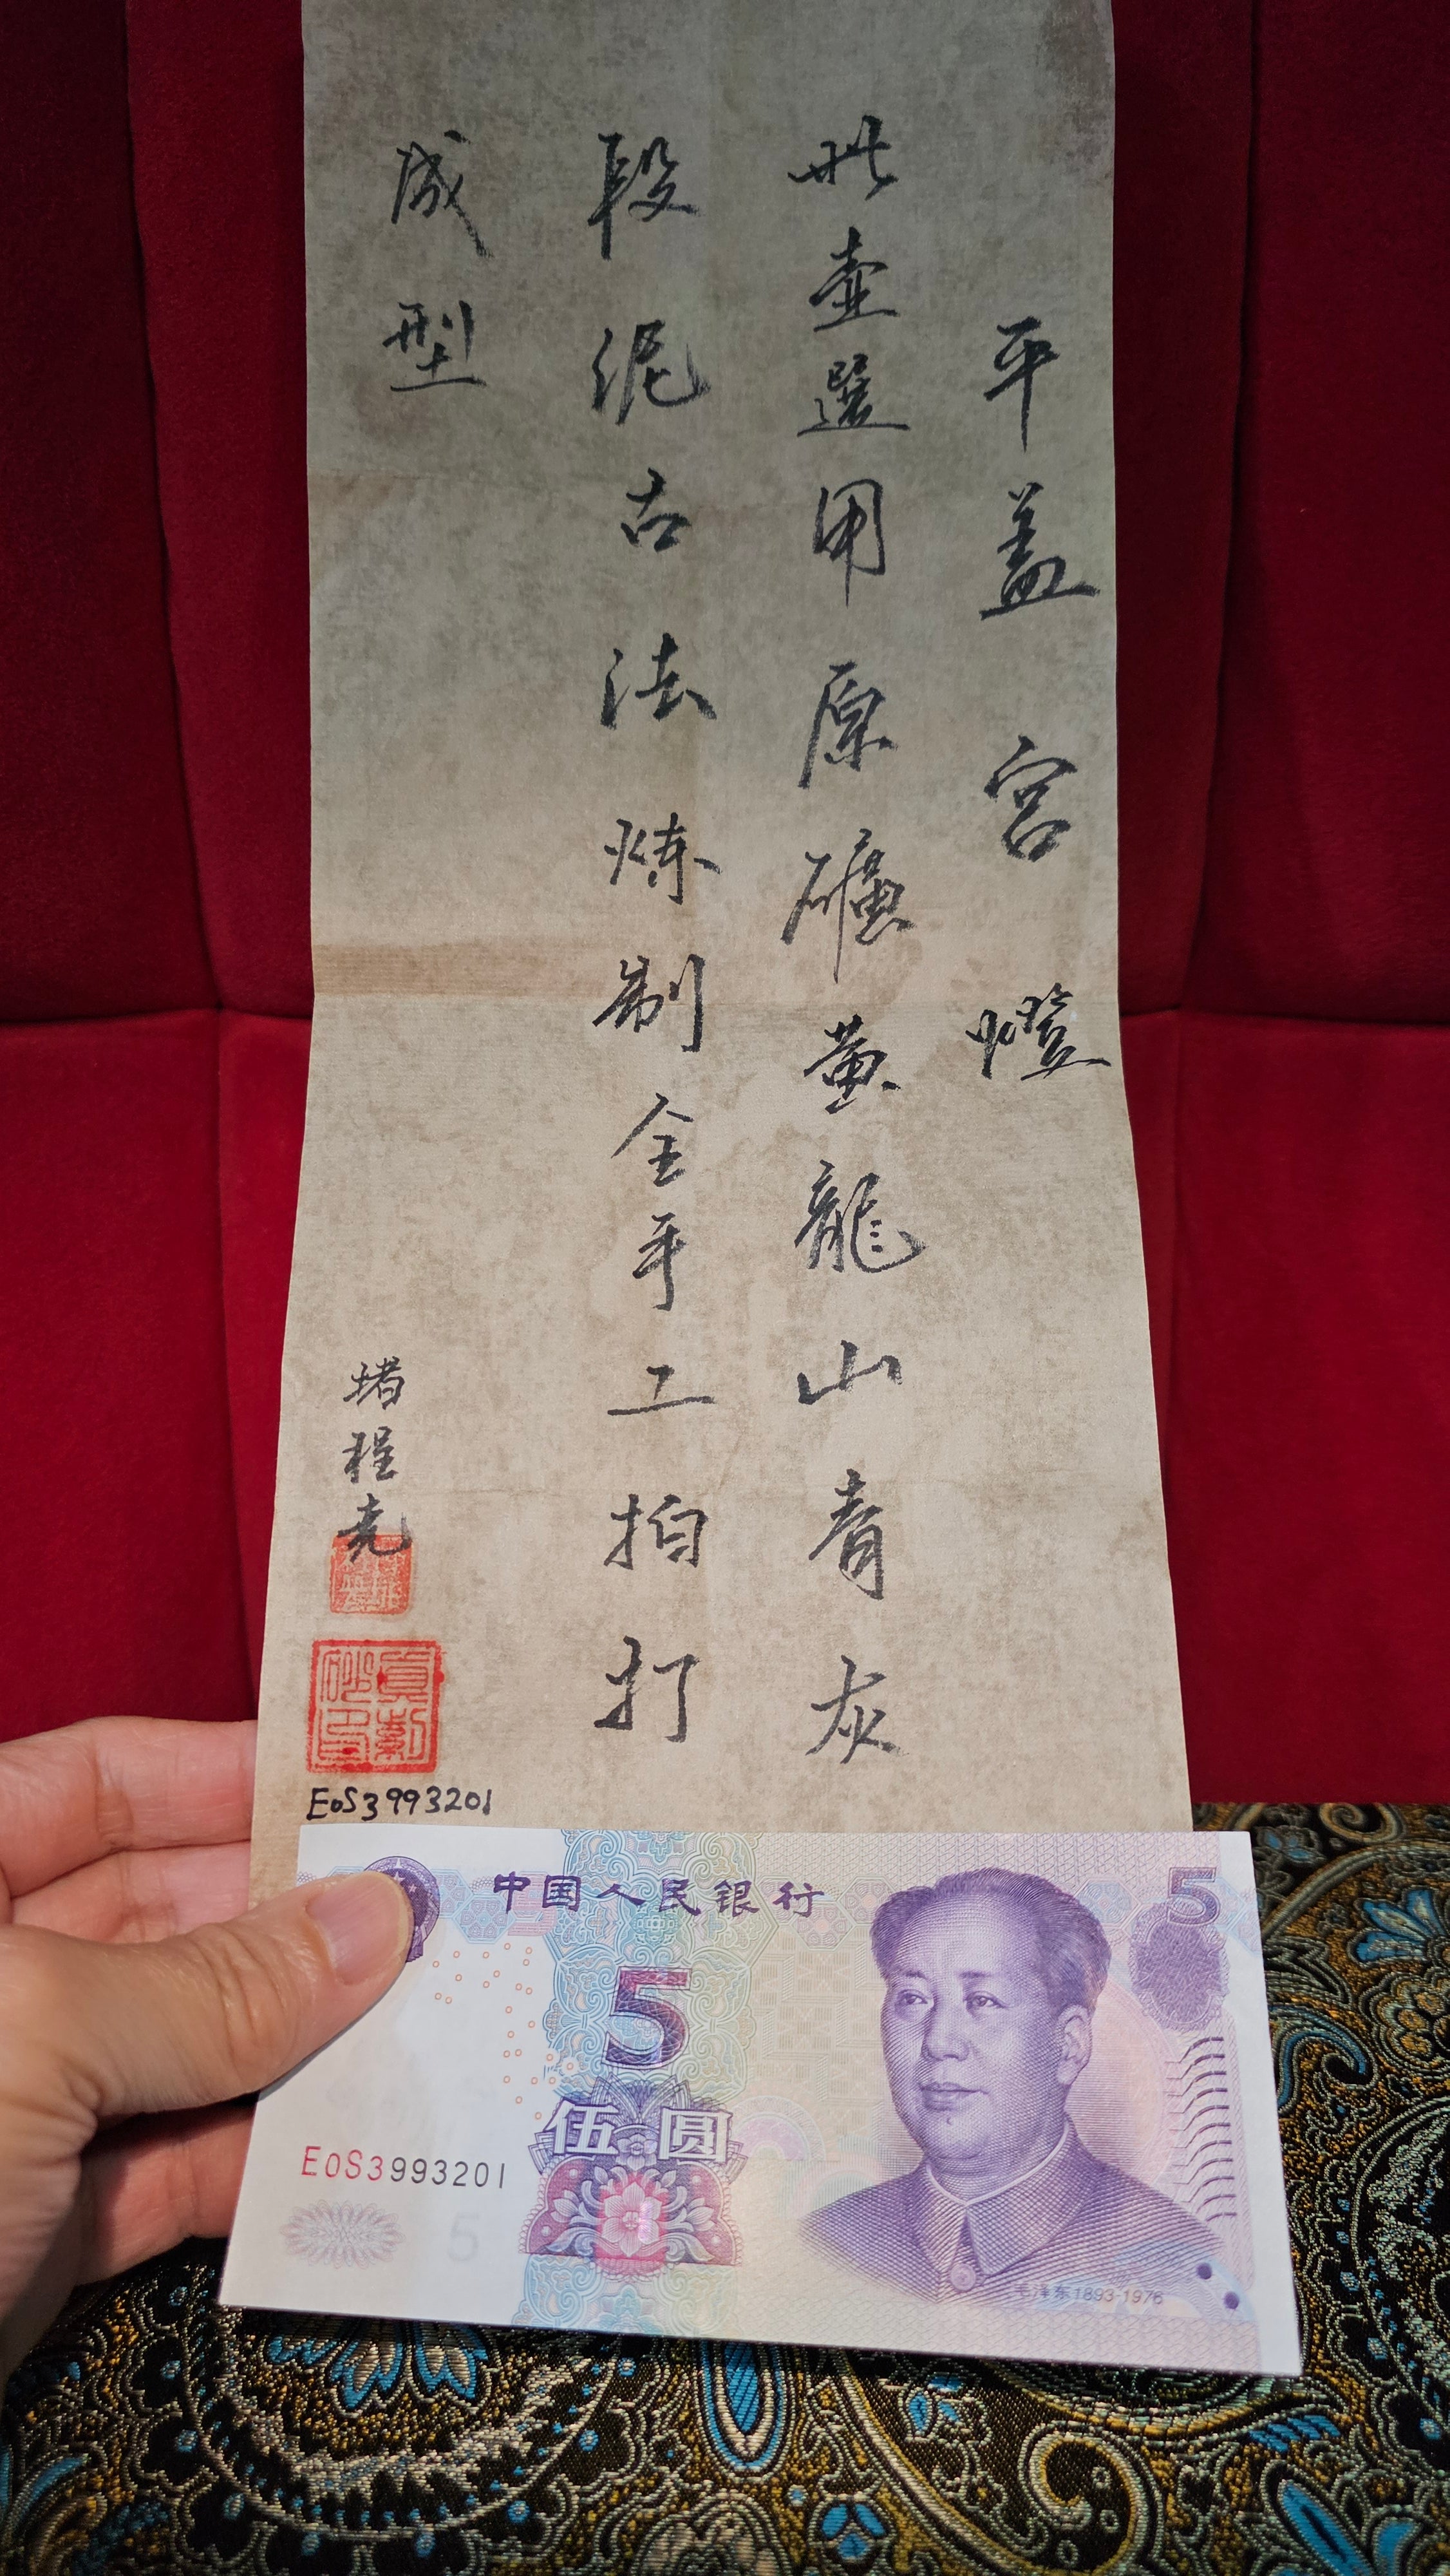 平盖宫燈
此壶選用原礦黄龍山青灰
段泥古法炼制全手工拍打
成型
堵程尧
真紫砂印
EoS3993201
中国人民银行
5
5
伍圆
EoS3993201
5
毛泽东1893-1976